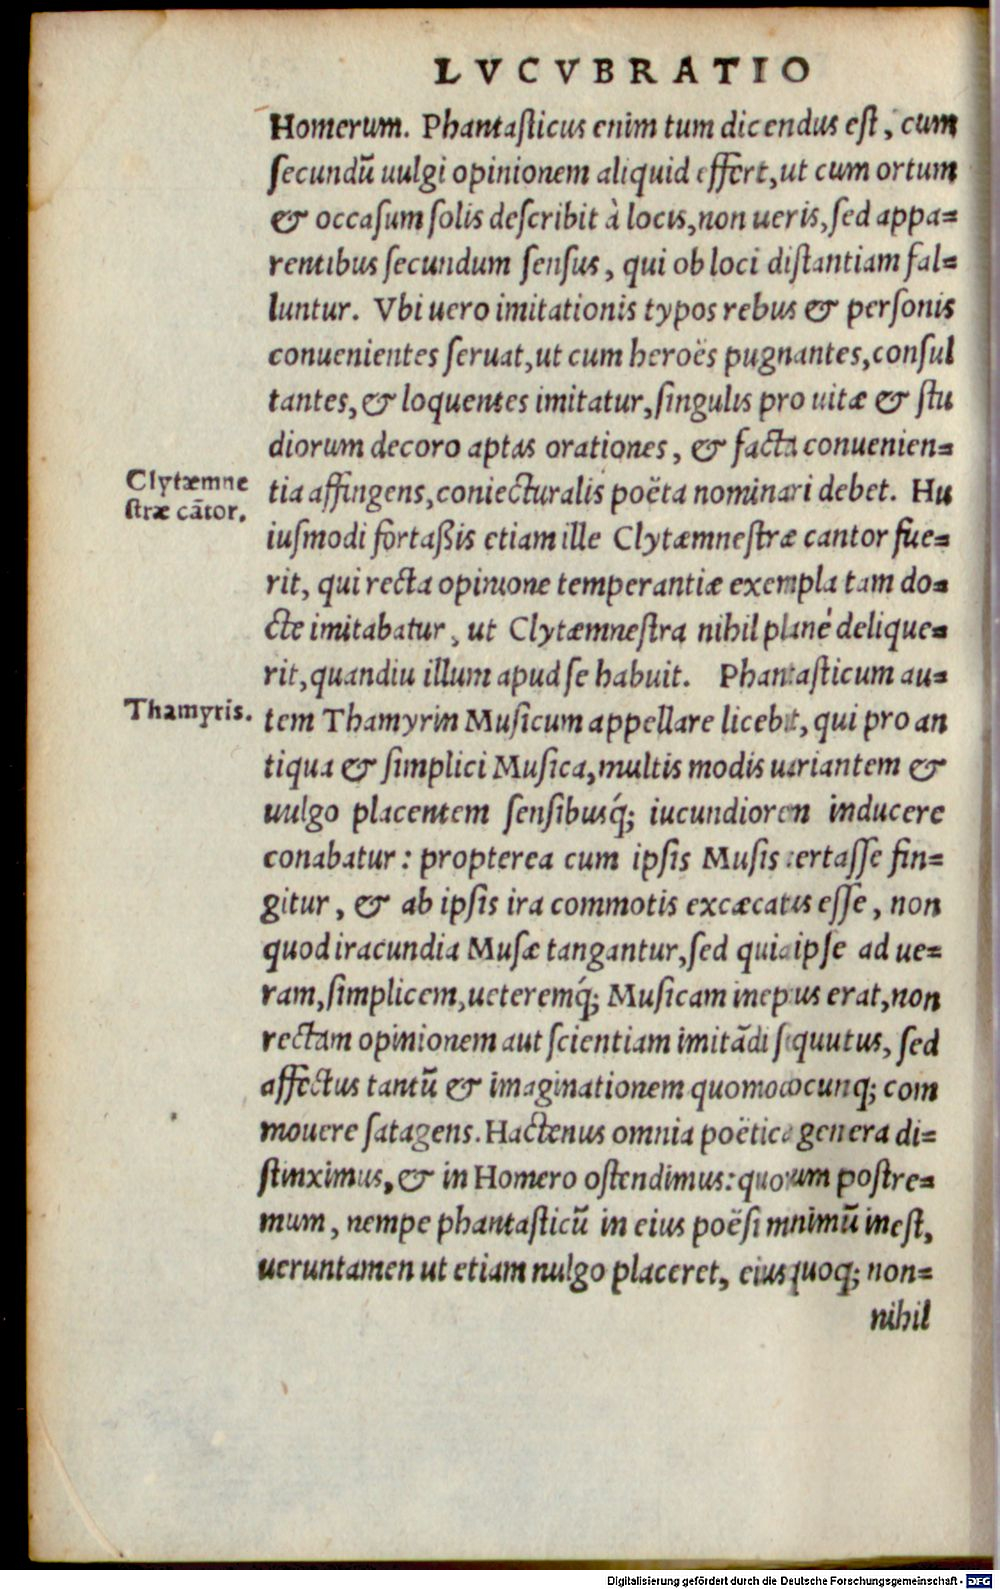 LVCVBRATIO
Homerum. Phantaſticus enim tum dicendus eſt, cum
ſecundũ uulgi opinionem aliquid effert, ut cum ortum
& occaſum ſolis deſcribit à locis, non ueris, ſed appa=
rentibus ſecundum ſenſus, qui ob loci diſtantiam fal=
luntur. Vbi uero imitationis typos rebus & perſonis
conuenientes ſeruat, ut cum heroës pugnantes, conſul
tantes, & loquentes imitatur, ſingulis pro uitæ & ſtu
diorum decoro aptas orationes, & facta conuenien=
Clytæmne
ſtræ cãtor.
tia affingens, coniecturalis poëta nominari debet. Hu
iuſmodi fortaßis etiam ille Clytæmneſtræ cantor fue=
rit, qui recta opinione temperantiæ exempla tam do=
cte imitabatur, ut Clytæmneſtra nihil planè delique=
rit, quandiu illum apud ſe habuit. Phantaſticum au=
Thamyris.
tem Thamyrin Muſicum appellare licebit, qui pro an
tiqua & ſimplici Muſica, multis modis uariantem &
uulgo placentem ſenſibusq́; iucundiorem inducere
conabatur: propterea cum ipſis Muſis certaſſe fin=
gitur, & ab ipſis ira commotis excæcatus eſſe, non
quod iracundia Muſæ tangantur, ſed quia ipſe ad ue=
ram, ſimplicem, ueteremq́; Muſicam ineptus erat, non
rectam opinionem aut ſcientiam imitãdi ſequutus, ſed
affectus tantũ & imaginationem quomodocunq; com
mouere ſatagens. Hactenus omnia poëtice genera di=
ſtinximus, & in Homero oſtendimus: quorum poſtre=
mum, nempe phantaſticũ in eius poëſi minimũ ineſt,
ueruntamen ut etiam nulgo placeret, eius quoq; non=
nihil
Digitalisierung gefördert durch die Deutsche Forschungsgemeinschaft - DFG